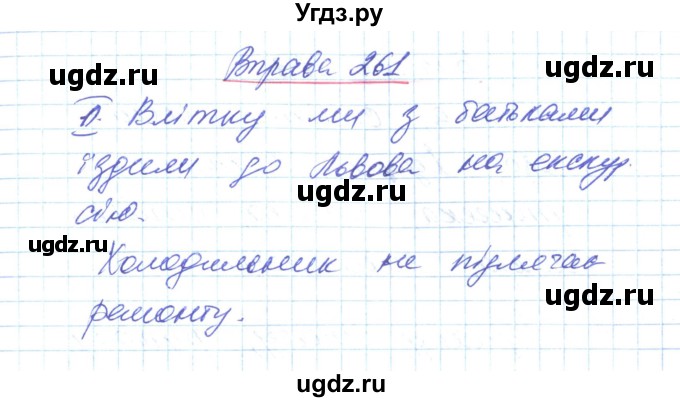 Угдз.ру
ugdz.ru ugdz.ru
Вправа 261
ugdz.ru
1. Влітку ми з батьками
їздили до Львова на екскур
ugdz.ru
сію.
ugdz.ru
Холодильник не підлягає
ugdz.ru
ремонту.
ugdz.ru
ugdz.ru